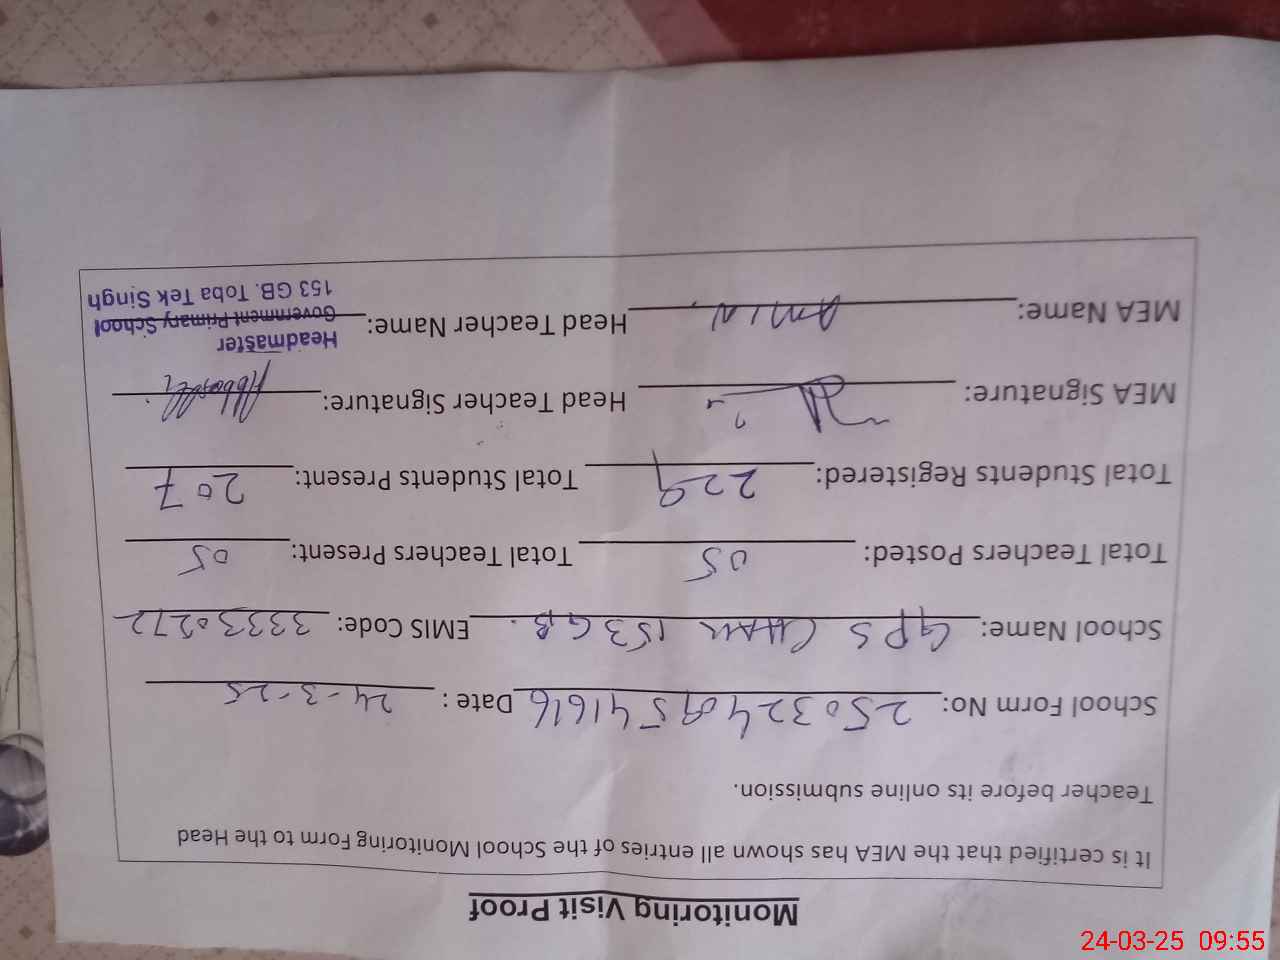 Monitoring Visit Proof
It is certified that the MEA has shown all entries of the School Monitoring Form to the Head
Teacher before its online submission.
School Form No: 25032409541616 Date : 24-3-25
School Name: GPS CHAK 153 GB. EMIS Code: 33330272
Total Teachers Posted: 05 Total Teachers Present: 05
Total Students Registered: 229 Total Students Present: 207
MEA Signature: Head Teacher Signature:
MEA Name: AMIN Head Teacher Name:
Headmaster
Government Primary School
153 GB. Toba Tek Singh
24-03-25 09:55